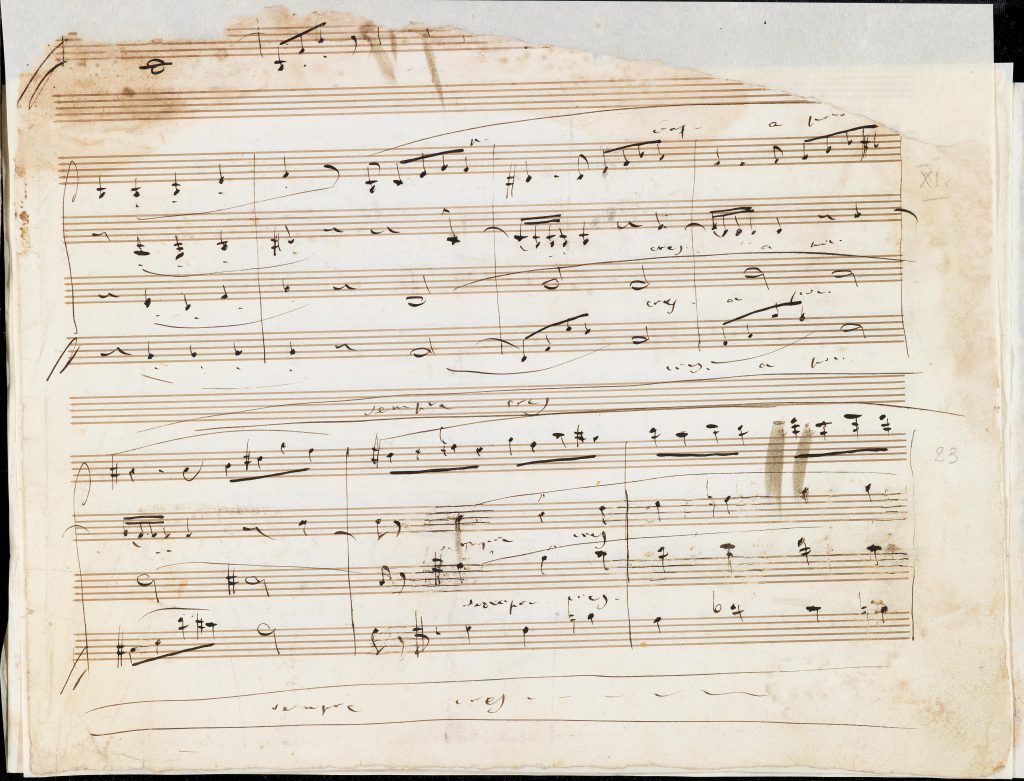 cresc. a poco
XI.
cres a poc.
cres a poc.
cres. a poc.
sempre cres
23
sempre cres
sempre cres.
sempre cres - - - -